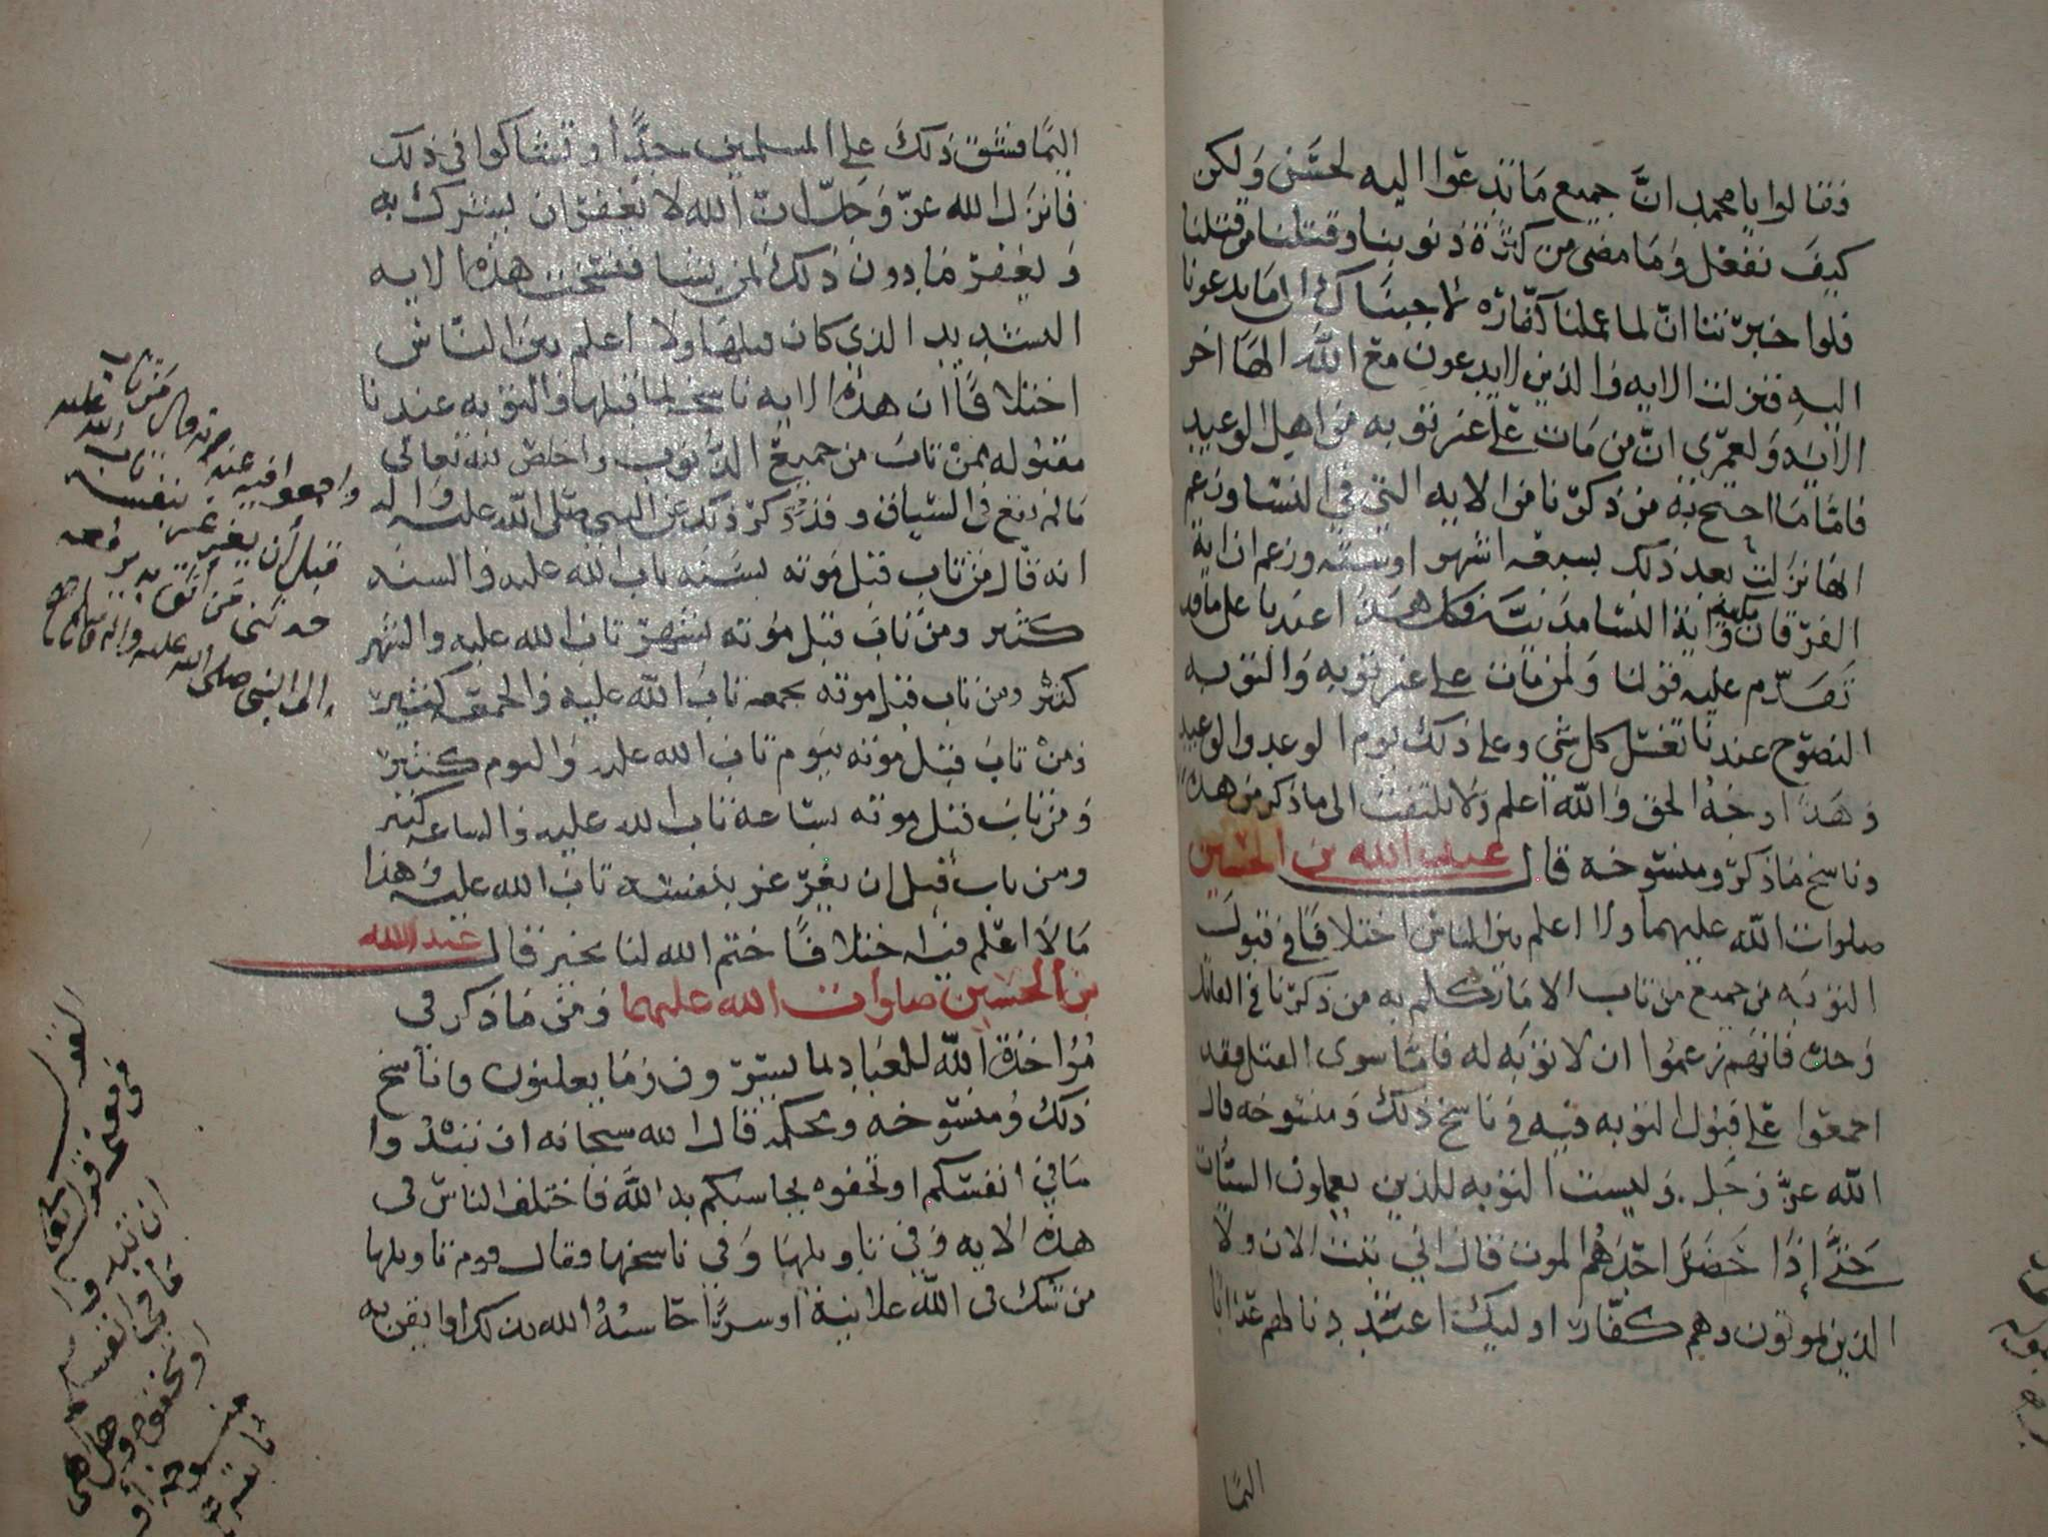 فقالوا يا محمد ان جميع ما تدعوا اليه لحسن ولكن
كيف نفعل وما مضى من كثرة ذنوبنا وقتلنا من قتلنا
فلوا خبرتنا ان لما عملنا كفارة لاجبناك الى ما تدعونا
اليه فنزلت الايه والذين لا يدعون مع الله الها اخر
الايه ولعمري ان من مات على غير توبه من اهل الوعيد
فاما ما احتج به من ذكرنا من الايه التي في النسا وزعم
انها نزلت بعد ذلك بسبعه اشهر او سته وزعم ان اية
الفرقان مكية واية النسا مدنية فكل هذا عندنا على ما قد
تقدم عليه قولنا ولمن مات على غير توبه والتوبه
النصوح عندنا تغسل كل شي وعلى ذلك يوم الوعد والوعيد
وهذا وجه الحق والله اعلم ولا يلتفت الى ما ذكر من هذا
وناسخ ما ذكر ومنسوخه قال عبد الله بن الحسين
صلوات الله عليهما ولا اعلم بين الناس اختلافا في قبول
التوبه من جميع من تاب الا ما تكلم به من ذكرنا في القاتل
وحده فانهم زعموا ان لا توبه له فاما سوى القتل فقد
اجمعوا على قبول التوبه فيه في ناسخ ذلك ومنسوخه قال
الله عز وجل وليست التوبه للذين يعملون السيات
حتى إذا حضر احدهم الموت قال اني تبت الان ولا
الذين يموتون وهم كفار اوليك اعتدنا لهم عذابا
اليما
اليما فشق ذلك على المسلمين جدا وتشاكوا في ذلك
فانزل الله عز وجل ان الله لا يغفر ان يشرك به
ويغفر ما دون ذلك لمن يشا فنسخت هذه الايه
التشديد الذي كان قبلها ولا اعلم بين الناس
اختلافا ان هذه الايه ناسخه لما قبلها والتوبه عندنا
مقبوله ممن تاب من جميع الذنوب واخلص لله تعالى
ما لم يقع في السياق وقد ذكر ذلك عن النبي صلى الله عليه واله
انه قال من تاب قبل موته بسنه تاب الله عليه والسنه
كثير ومن تاب قبل موته بشهر تاب الله عليه والشهر
كثير ومن تاب قبل موته بجمعه تاب الله عليه والجمعه كثير
ومن تاب قبل موته بيوم تاب الله عليه واليوم كثير
ومن تاب قبل موته بساعة تاب الله عليه والساعه كثير
ومن تاب قبل ان يغرغر بنفسه تاب الله عليه وهذا
ما لا اعلم فيه اختلافا ختم الله لنا بخير قال عبد الله
بن الحسين صلوات الله عليهما ومن ما ذكر في
مواخذة الله للعباد بما يسترون وما يعلنون وناسخ
ذلك ومنسوخه ومحكمه قال الله سبحانه ان تبدوا
ما في انفسكم او تخفوه يحاسبكم به الله فاختلف الناس في
هذه الايه وفي تاويلها وفي ناسخها فقال قوم تاويلها
من شك في الله علانية او سرا حاسبه الله بذلك او ايقن به
واجمعوا فيه
من تاب
قبل أن يغرغر بنفسه تاب الله عليه
حدثني من أثق به يرفعه
الى النبي صلى الله عليه واله
في معنى قوله
ان تبدوا
ما في انفسكم
او تخفوه وهل هي
منسوخه أو